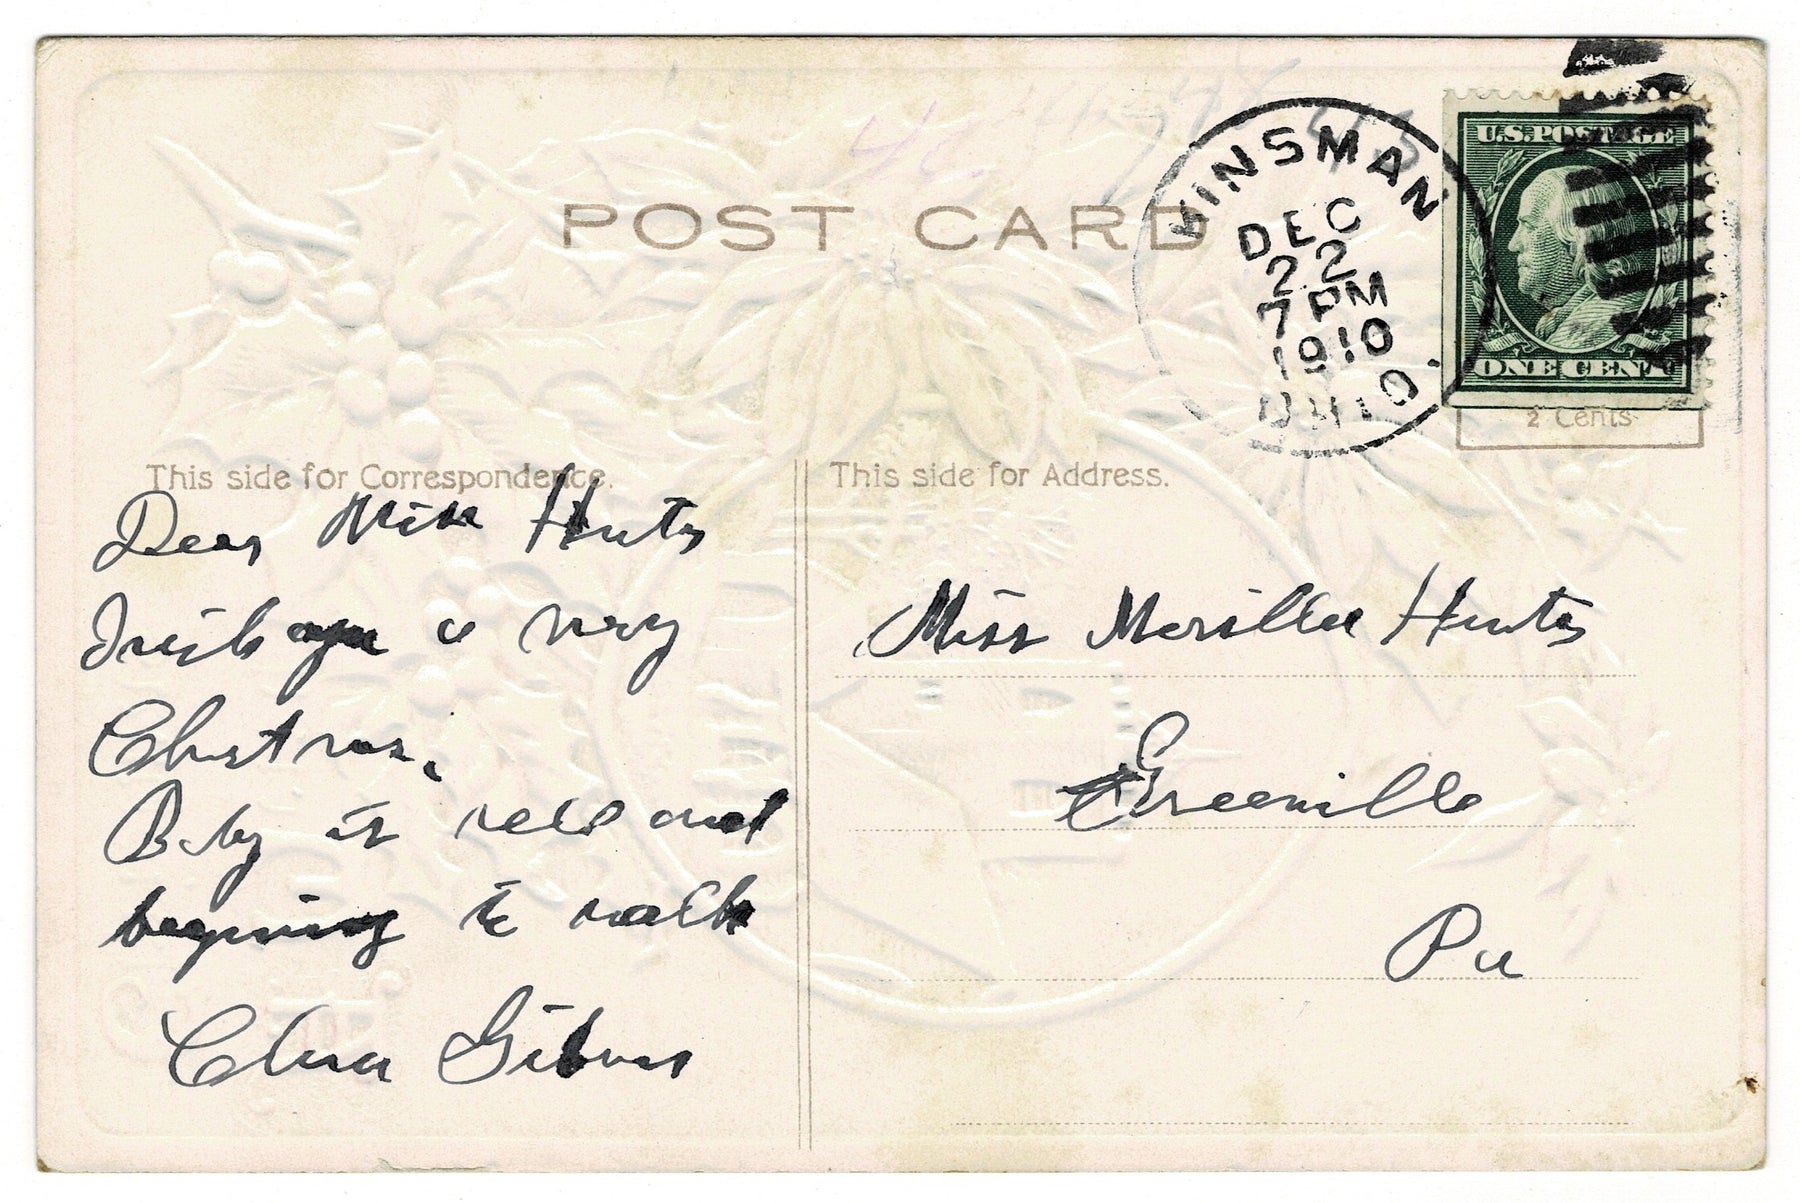 POST CARD
KINSMAN
DEC
22
7 PM
1910
OHIO.
U.S. POSTAGE
ONE CENT
2 Cents
This side for Correspondence.
Dear Miss
a very
Baby is well and
begining to walk
Clara
This side for Address.
Miss
Greenville
Pa